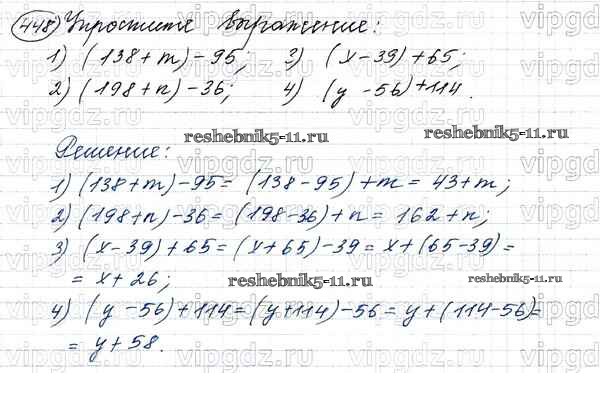 448) Упростите выражение:
1) (138+m)-95; 3) (x-39)+65;
2) (198+n)-36; 4) (y-56)+114.
reshebnik5-11.ru
Решение:
reshebnik5-11.ru
1) (138+m)-95= (138-95)+m= 43+m;
2) (198+n)-36=(198-36)+n= 162+n;
3) (x-39)+65=(x+65)-39=x+(65-39)=
= x+26;
reshebnik5-11.ru reshebnik5-11.ru
4) (y-56)+114=(y+114)-56=y+(114-56)=
= y+58.
vipgdz.ru vipgdz.ru vipgdz.ru vipgdz.ru